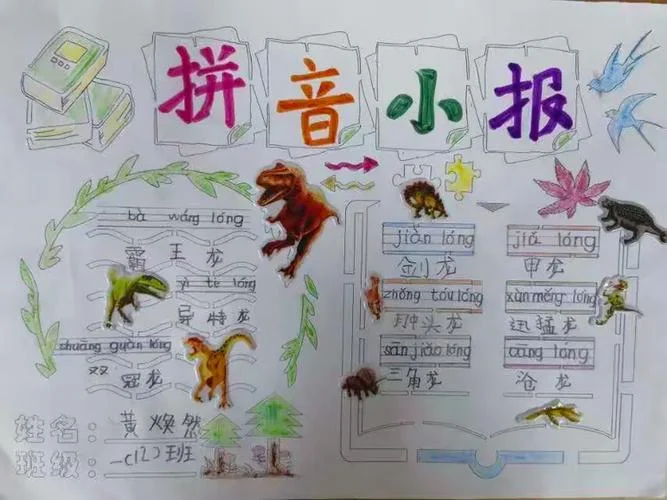 拼音小报
bà wáng lóng
霸王龙
yì tè lóng
异特龙
shuāng guàn lóng
双冠龙
姓名：黄焕然
班级：一(12)班
jiàn lóng
剑龙
zhǒng tóu lóng
肿头龙
sān jiǎo lóng
三角龙
jiǎ lóng
甲龙
xùn měng lóng
迅猛龙
cāng lóng
沧龙